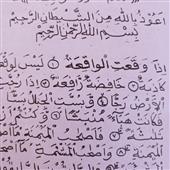 اَعُوْذُ بِاللّٰهِ مِنَ الشَّيْطَانِ الرَّجِيْمِ
بِسْمِ اللّٰهِ الرَّحْمٰنِ الرَّحِيْمِ
اِذَا وَقَعَتِ الْوَاقِعَةُ ۝ لَيْسَ لِوَقْعَ
كَاذِبَةٌ ۝ خَافِضَةٌ رَّافِعَةٌ ۝ اِذَا رُجَّتِ
الْاَرْضُ رَجًّا ۝ وَّبُسَّتِ الْجِبَالُ بَسًّا
فَكَانَتْ هَبَآءً مُّنْۢبَثًّا ۝ وَّكُنْتُمْ
ثَلٰثَةً ۝ فَاَصْحٰبُ الْمَيْمَنَةِ مَآ اَصْحٰبُ
الْمَيْمَنَةِ ۝ وَاَصْحٰبُ الْمَشْـَٔمَةِ